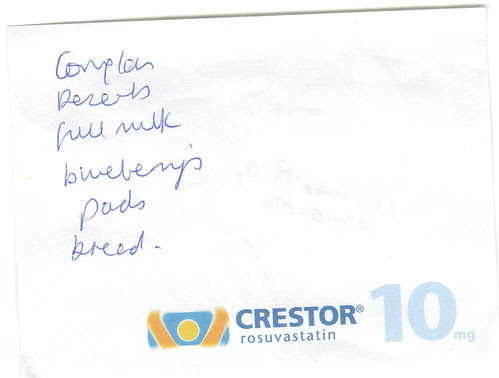 Complan
Deserts
full milk
blueberry's
pads
bread.
CRESTOR® 10 mg
rosuvastatin